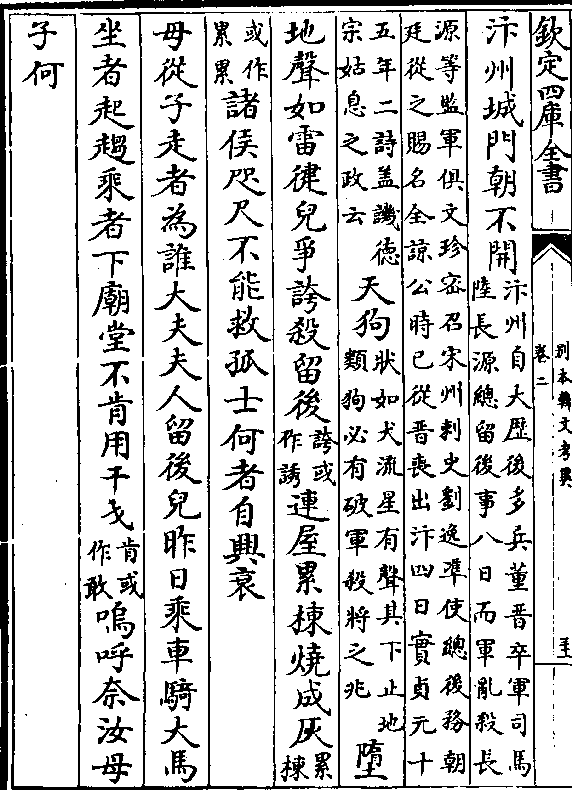 欽定四庫全書
別本韓文考異
卷二
汴州城門朝不開
汴州自大歴後多兵董晉卒軍司馬
陸長源總留後事八日而軍亂殺長
源等監軍俱文珍宻召宋州刺史劉逸凖使總後務朝
廷從之賜名全諒公時已從晉喪出汴四日實貞元十
五年二詩盖譏德
宗姑息之政云
天狗
狀如犬流星有聲其下止地
類狗必有破軍殺將之兆
墮
地聲如雷徤兒爭誇殺留後
誇或
作誘
連屋累棟燒成灰
累
棟
或作
累累
諸侯咫尺不能救孤士何者自興衰
母從子走者為誰大夫夫人留後兒昨日乘車騎大馬
坐者起趨乘者下廟堂不肯用干戈
肯或
作敢
嗚呼奈汝母
子何